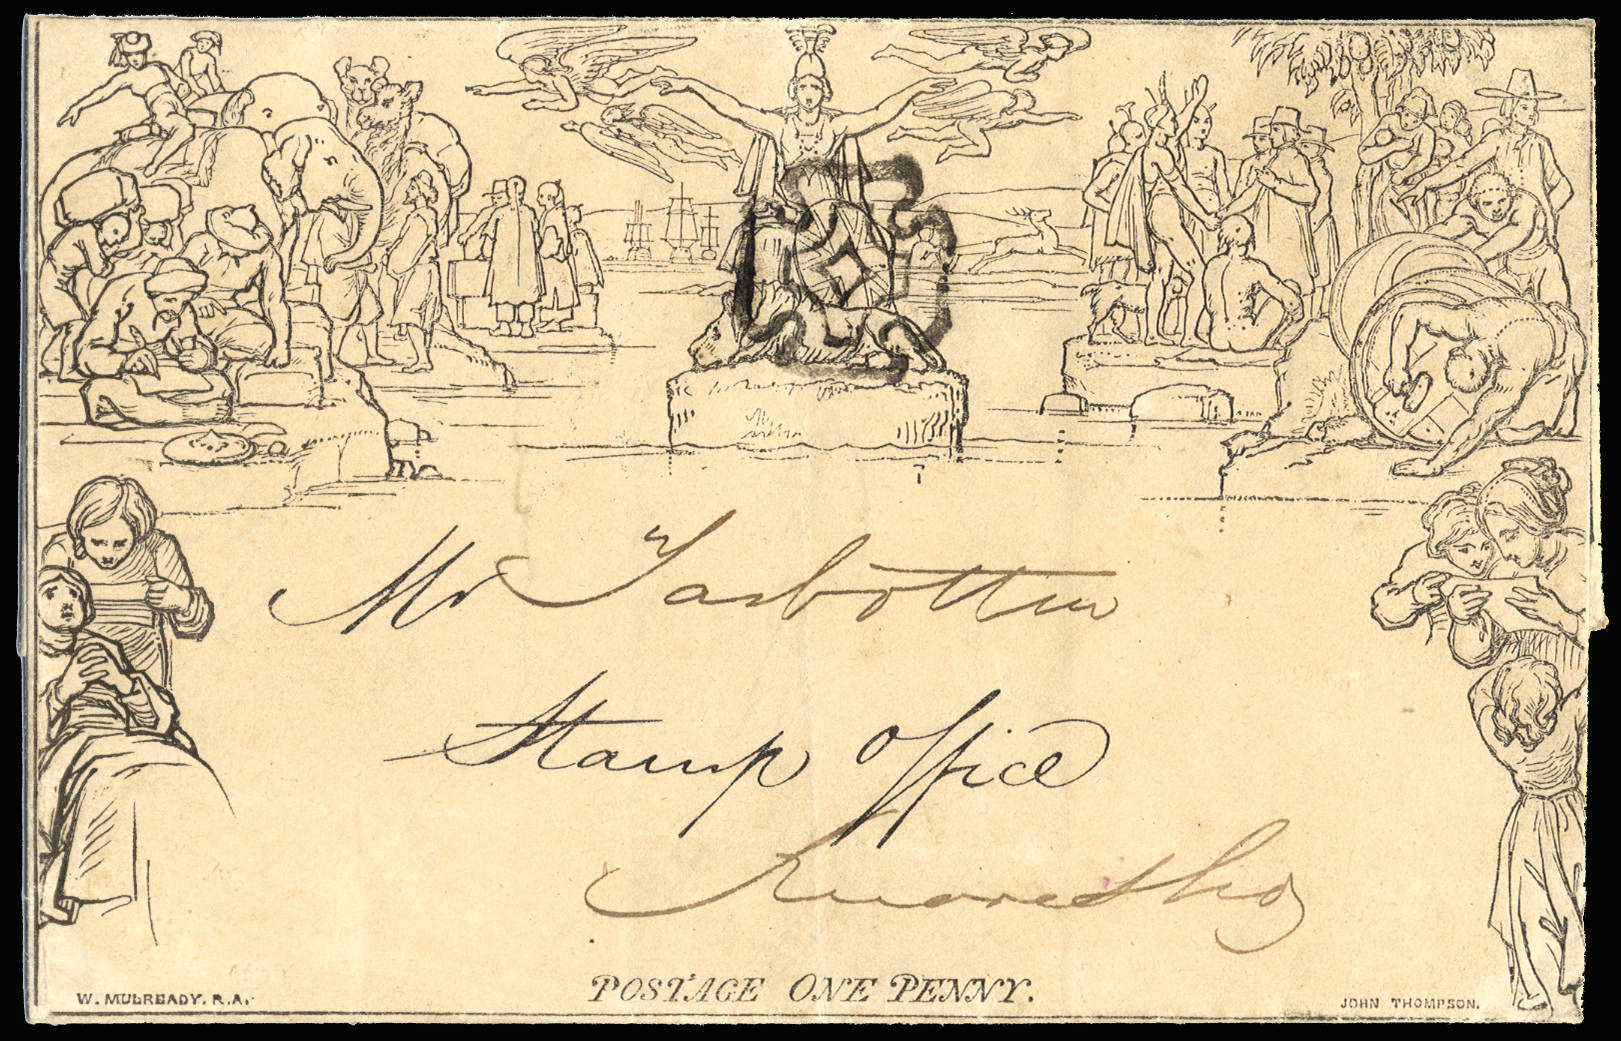 Mr Tarbotton
Stamp Office
POSTAGE ONE PENNY.
W. MULREADY. R.A.
JOHN THOMPSON.